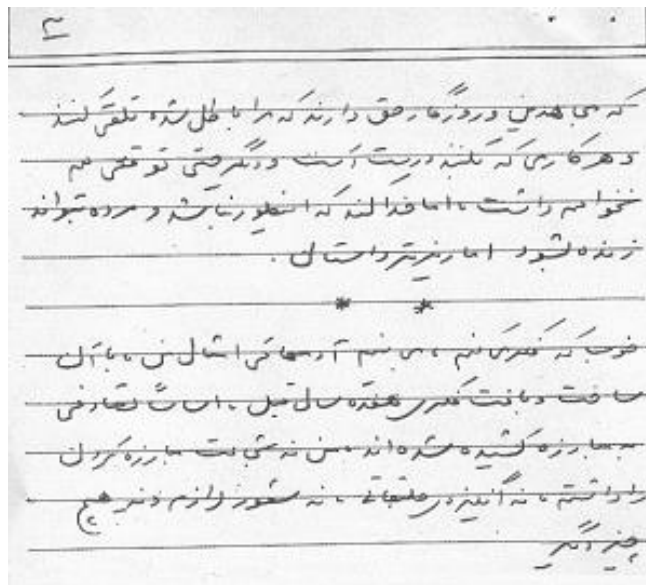 که بی هدفی و روزگار حق دارند که مرا باطل شده تلقی کنند
و هر کاری که بکنند درست است و دیگر حتی توقعی هم
نخواهم داشت، اما خدا کند که اینطور نباشد و مرده بتواند
زنده بشود اما
* *
خوب که فکر می کنم، می بینم آدمهائی امثال من، با آن
ساخت و بافت فکری هفده سال قبل، اساساً تصادفی
به مبارزه کشیده شده اند، من نه شجاعت مبارزه کردن
را داشتم، نه انگیزه ی طبقاتی، نه شعور لازم و نه هیچ
چیز دیگری